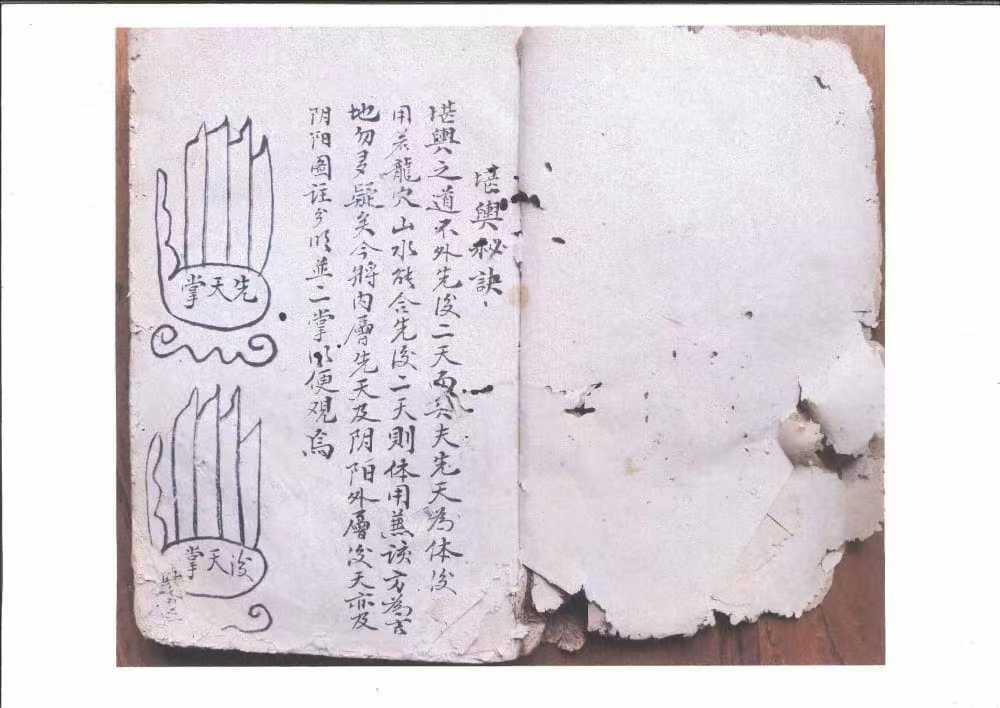 堪輿秘訣、
堪輿之道不外先後二天而矣夫先天為体後
用若龍穴山水能合先後二天則体用兼该方為吉
地勿多疑矣今將内層先天及阴阳外層後天亦及
阴阳圖註分明並二掌明便观焉
先天掌
後天掌